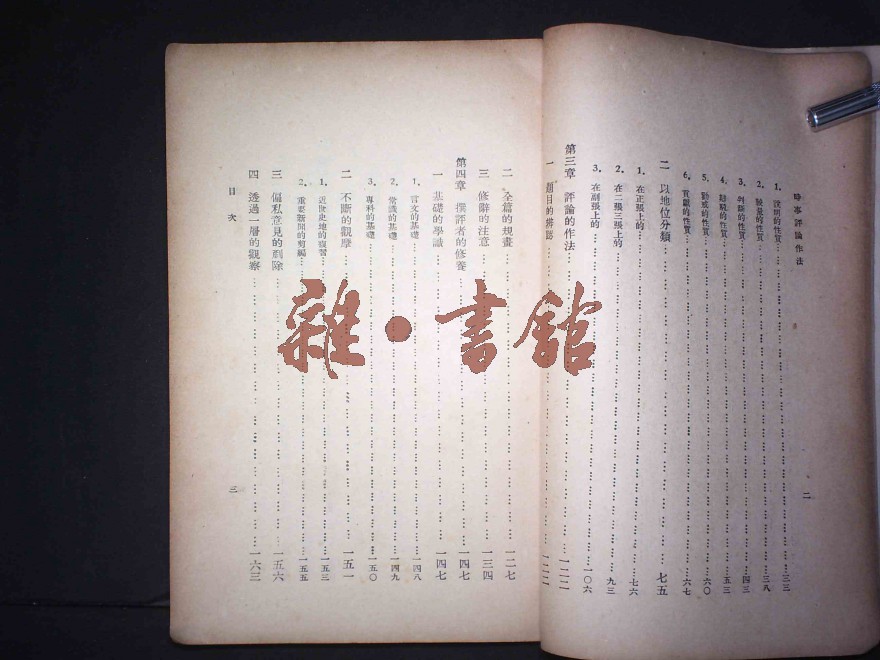 時事評論作法
二
1. 說明的性質……三三
2. 較量的性質……三八
3. 判斷的性質……四三
4. 的性質……五三
5. 勸戒的性質……六〇
6. 貢獻的性質……六七
二 以地位分類……七五
1. 在正張上的……七六
2. 在二張三張上的……九三
3. 在副張上的……一〇六
第三章 評論的作法……一二二
一 題目的辨認……一二二
二 全篇的規畫……一二七
三 修辭的注意……一三四
第四章 撰評者的修養……一四七
一 基礎的學識……一四七
1. 言文的基礎……一四八
2. 常識的基礎……一四九
3. 專科的基礎……一五〇
二 不斷的觀摩……一五一
1. 近世史地的複習……一五三
2. 重要新聞的剪編……一五五
三 偏私意見的剷除……一五六
四 透過一層的觀察……一六三
目次
三
雜·書館